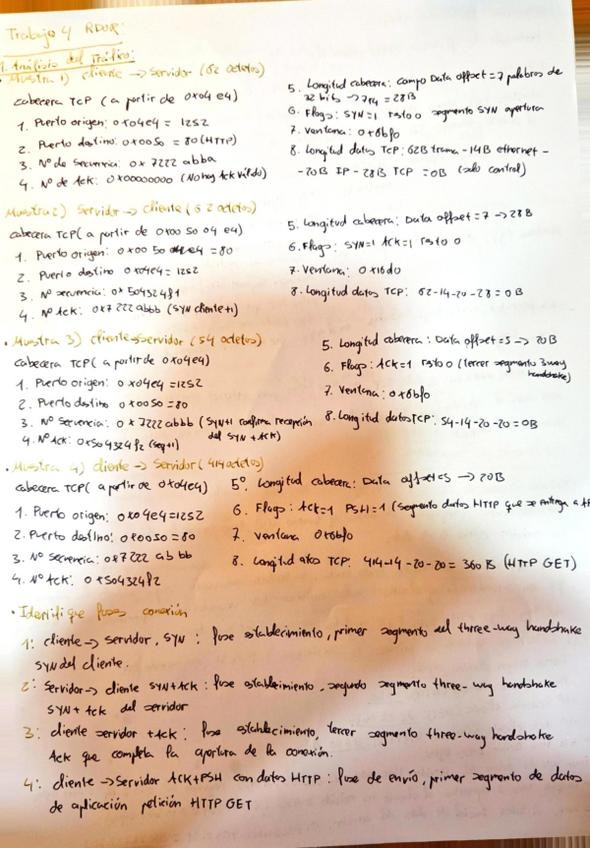 Trabajo 4 RDOR:
1. Análisis del Tráfico:
Muestra 1) cliente → servidor (62 octetos)
cabecera TCP (a partir de 0x04 e4)
1. Puerto origen: 0x04e4 = 1252
2. Puerto destino: 0x0050 = 80 (HTTP)
3. Nº de secuencia: 0x 7222 abba
4. Nº de Ack: 0x00000000 (No hay Ack válido)
5. Longitud cabecera: campo Data offset = 7 palabras de
32 bits → 7x4 = 28B
6. Flags: SYN=1 resto 0 segmento SYN apertura
7. Ventana: 0x6bf0
8. Longitud datos TCP: 62B trama - 14B ethernet -
- 20B IP - 28B TCP = 0B (solo control)
Muestra 2) Servidor → cliente (62 octetos)
cabecera TCP (a partir de 0x00 50 04 e4)
1. Puerto origen: 0x00 50 = 80
2. Puerto destino 0x04e4 = 1252
3. Nº secuencia: 0x 504324f1
4. Nº Ack: 0x7222 abbb (SYN cliente+1)
5. Longitud cabecera: Data offset = 7 → 28B
6. Flags: SYN=1 Ack=1 resto 0
7. Ventana: 0x16d0
8. Longitud datos TCP: 62-14-20-28 = 0B
• Muestra 3) cliente→servidor (54 octetos)
cabecera TCP (a partir de 0x04e4)
1. Puerto origen: 0x04e4 = 1252
2. Puerto destino 0x0050 = 80
3. Nº Secuencia: 0x 7222 abbb (SYN+1 confirma recepción
del SYN + ACK)
4. Nº Ack: 0x504324f2 (seq+1)
5. Longitud cabecera: Data offset = 5 → 20B
6. Flags: ACK=1 resto 0 (tercer segmento 3way
handshake)
7. Ventana: 0x6bf0
8. Longitud datos TCP: 54-14-20-20 = 0B
• Muestra 4) cliente → Servidor (414 octetos)
cabecera TCP (a partir de 0x04e4)
1. Puerto origen: 0x04e4 = 1252
2. Puerto destino: 0x0050 = 80
3. Nº Secuencia: 0x7222 ab bb
4. Nº Ack: 0x504324f2
5º Longitud cabecera: Data offset=5 → 20B
6. Flags: Ack=1 PSH=1 (segmento datos HTTP que se entrega a
7. Ventana 0x6bf0
8. Longitud datos TCP: 414-14-20-20 = 360 B (HTTP GET)
• Identifique fases conexión
1: cliente → servidor, SYN: fase establecimiento, primer segmento del three-way handshake
SYN del cliente.
2: Servidor → cliente SYN+Ack: fase establecimiento, segundo segmento three-way handshake
SYN + Ack del servidor
3: cliente servidor +Ack: fase establecimiento, tercer segmento three-way handshake
Ack que completa la apertura de la conexión.
4: cliente → Servidor ACK+PSH con datos HTTP: fase de envío, primer segmento de datos
de aplicación petición HTTP GET